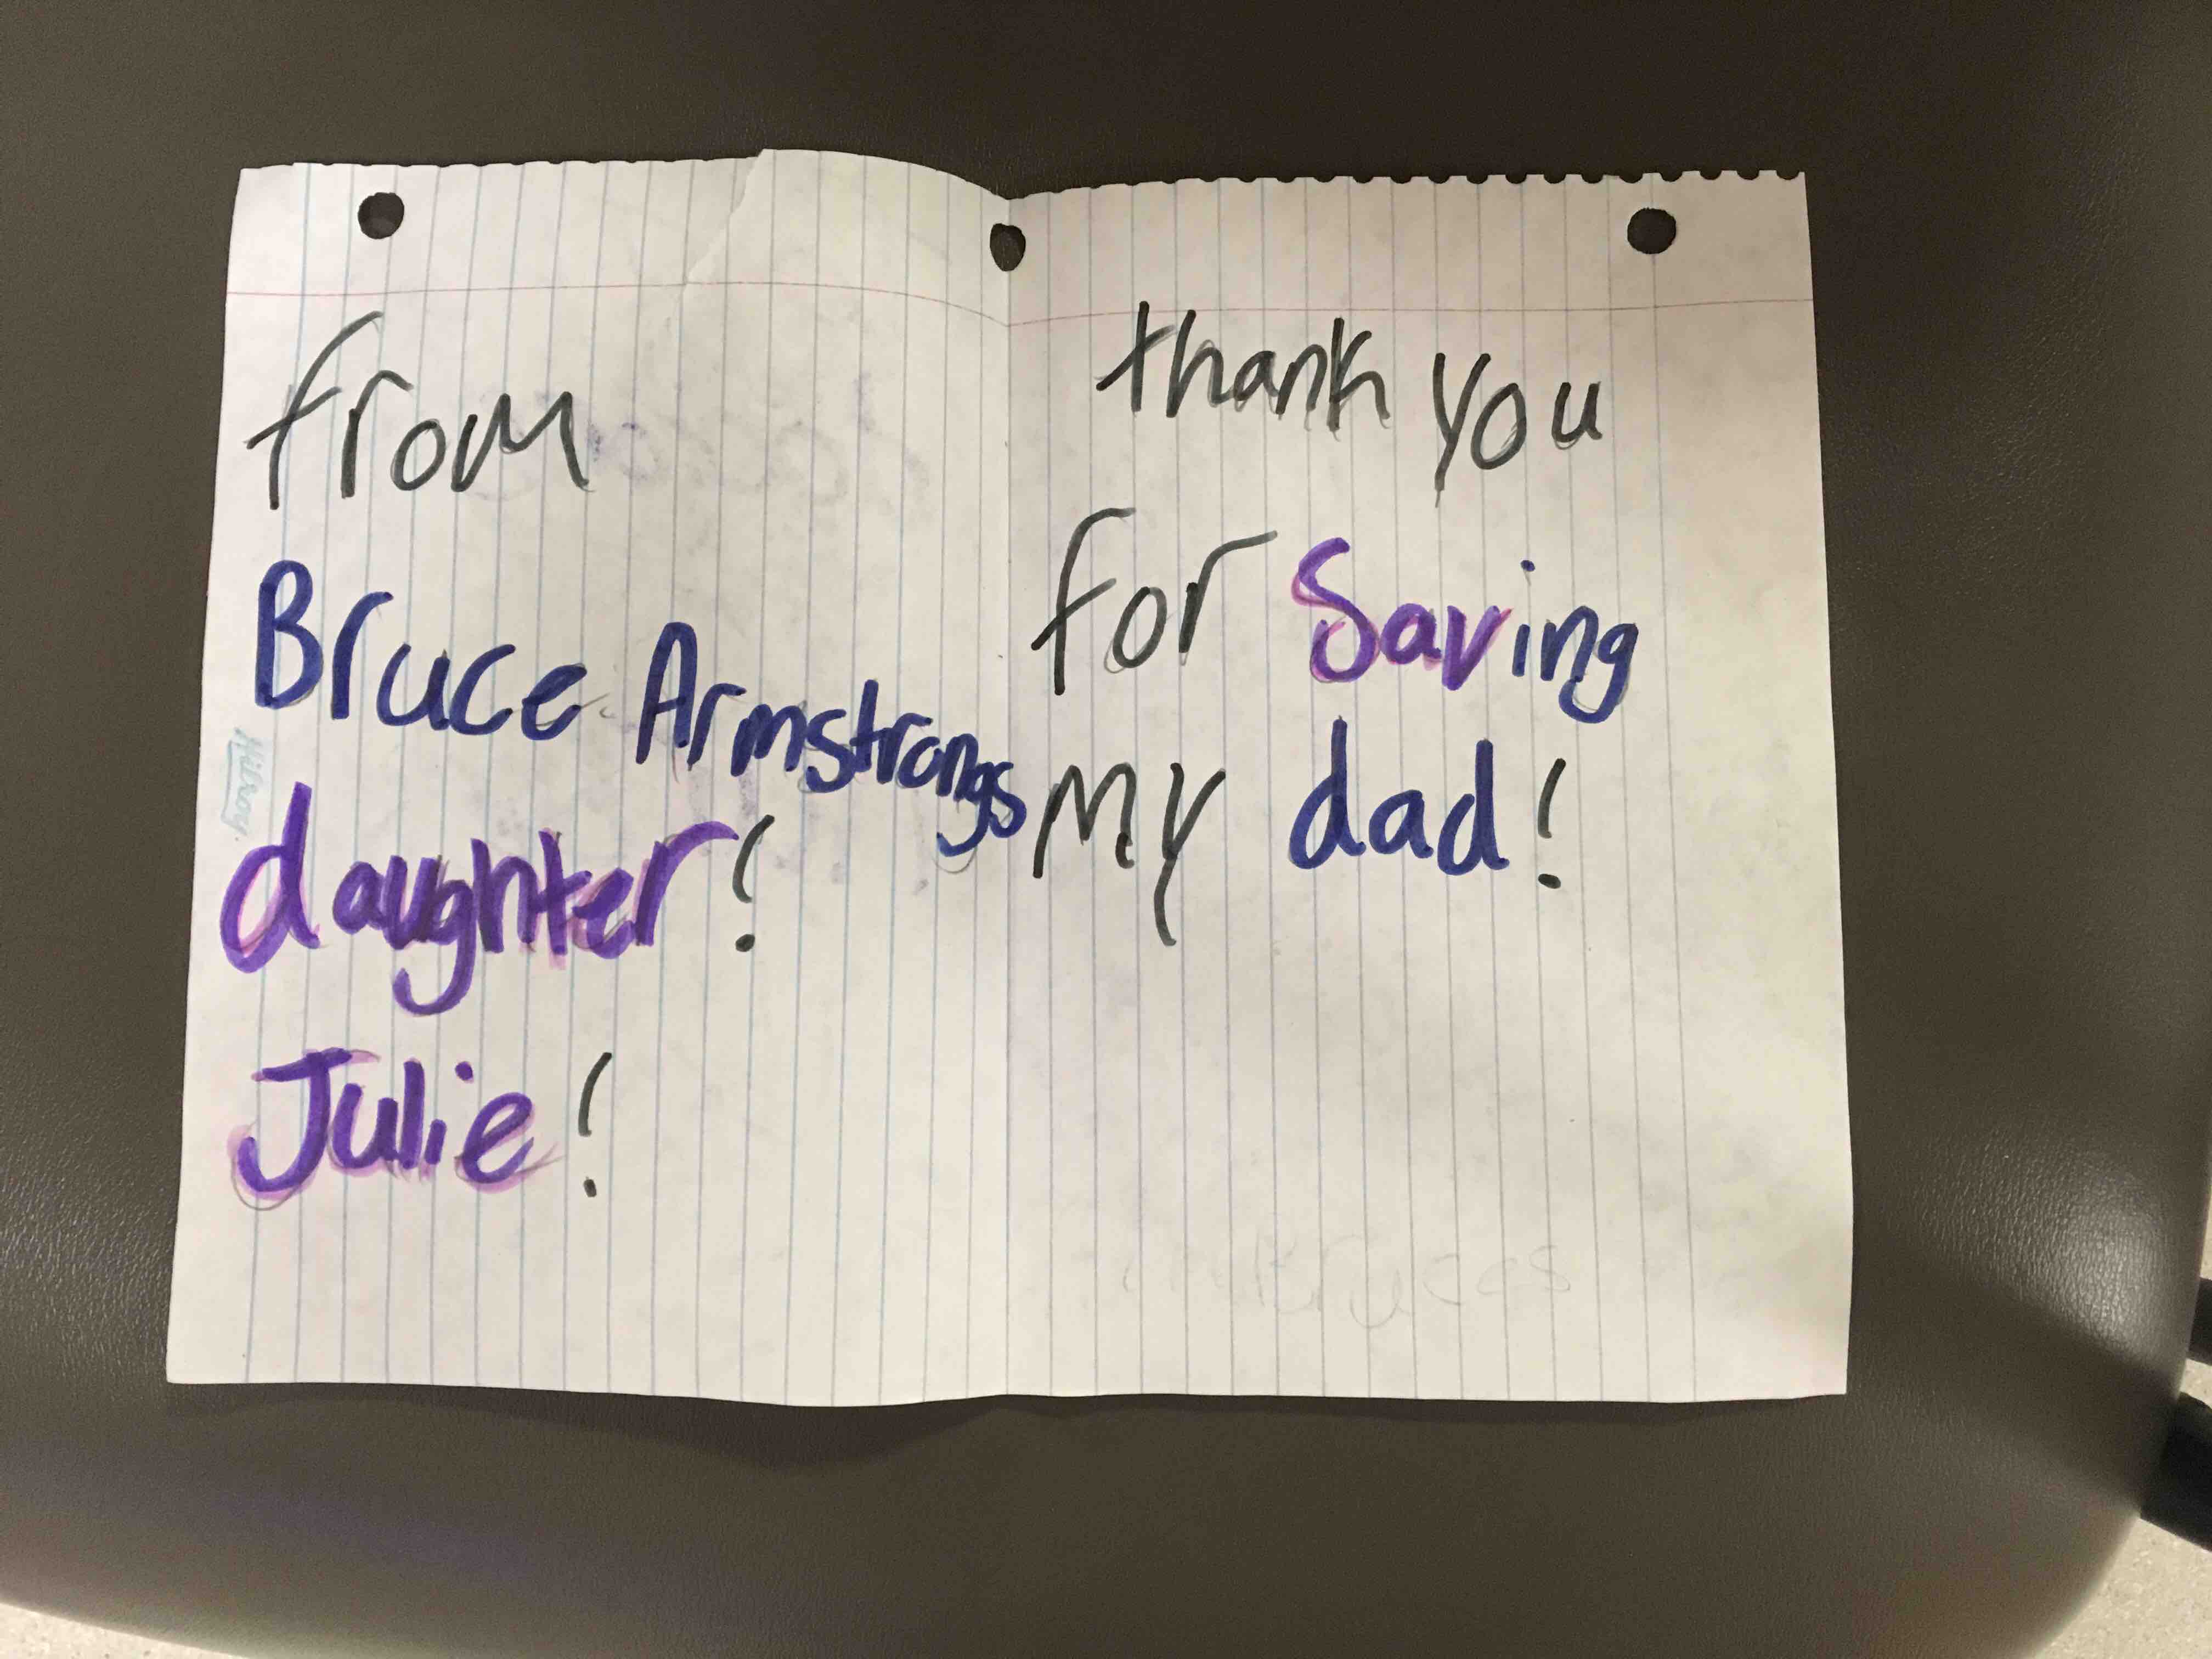 from
Bruce Armstrongs
daughter!
Julie!
thank you
for saving
my dad!
Bruces
Hilroy